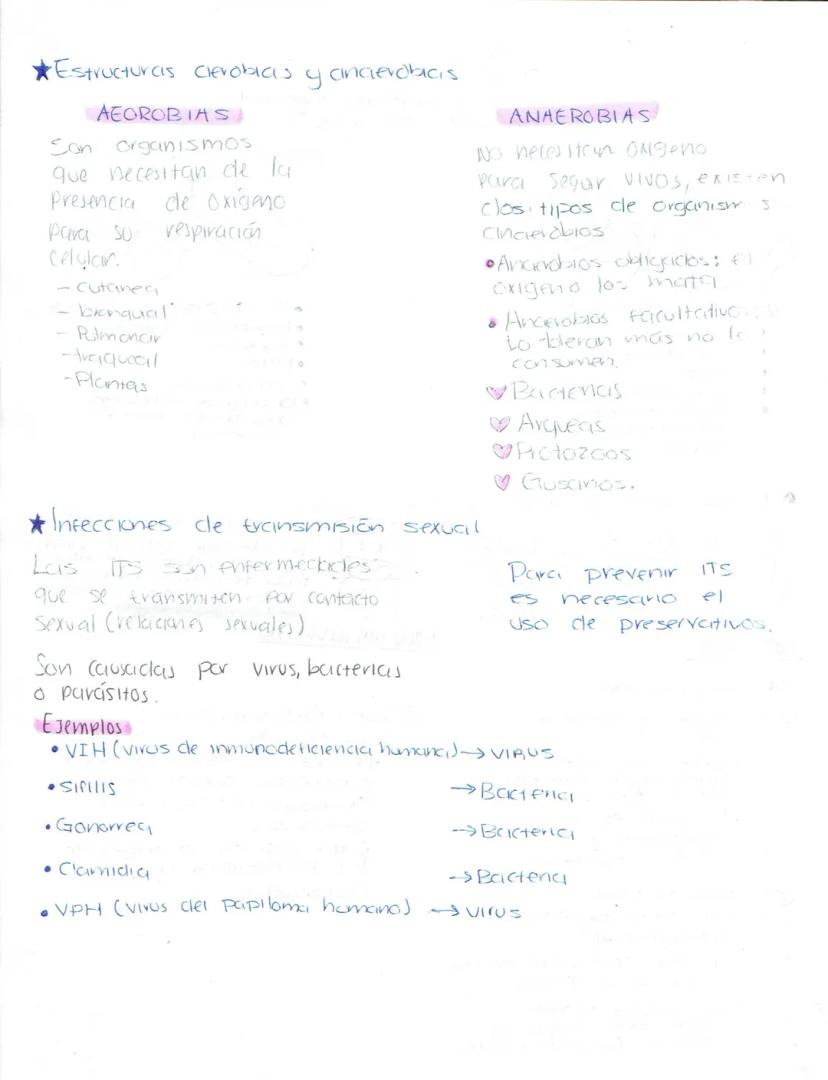 ★ Estructuras aerobias y anaerobias
AEOROBIAS
Son organismos
que necesitan de la
Presencia de oxígeno
para su respiración
Celular.
- Cutanea
- branqual
- Pulmonar
- traqueal
- Plantas
ANAEROBIAS
No necesitan oxigeno
para Seguir vivos, existen
dos tipos de organismos
anaerobios
• Anaerobios obligados: El
oxigeno los mata
• Anaerobios facultativos:
Lo toleran más no lo
consumen.
♡ Bacterias
♡ Arqueas
♡ Protozoos
♡ Gusanos.
★ Infecciones de transmisión sexual
Las ITS son enfermedades
que se transmiten por contacto
Sexual (relaciones sexuales)
Son causadas por virus, bacterias
o parásitos.
Para prevenir ITS
es necesario el
uso de preservativos.
Ejemplos
• VIH (virus de inmunodeficiencia humana) → VIRUS
• Sífilis → Bacteria
• Gonorrea → Bacteria
• Clamidia → Bacteria
• VPH (virus del papiloma humano) → virus